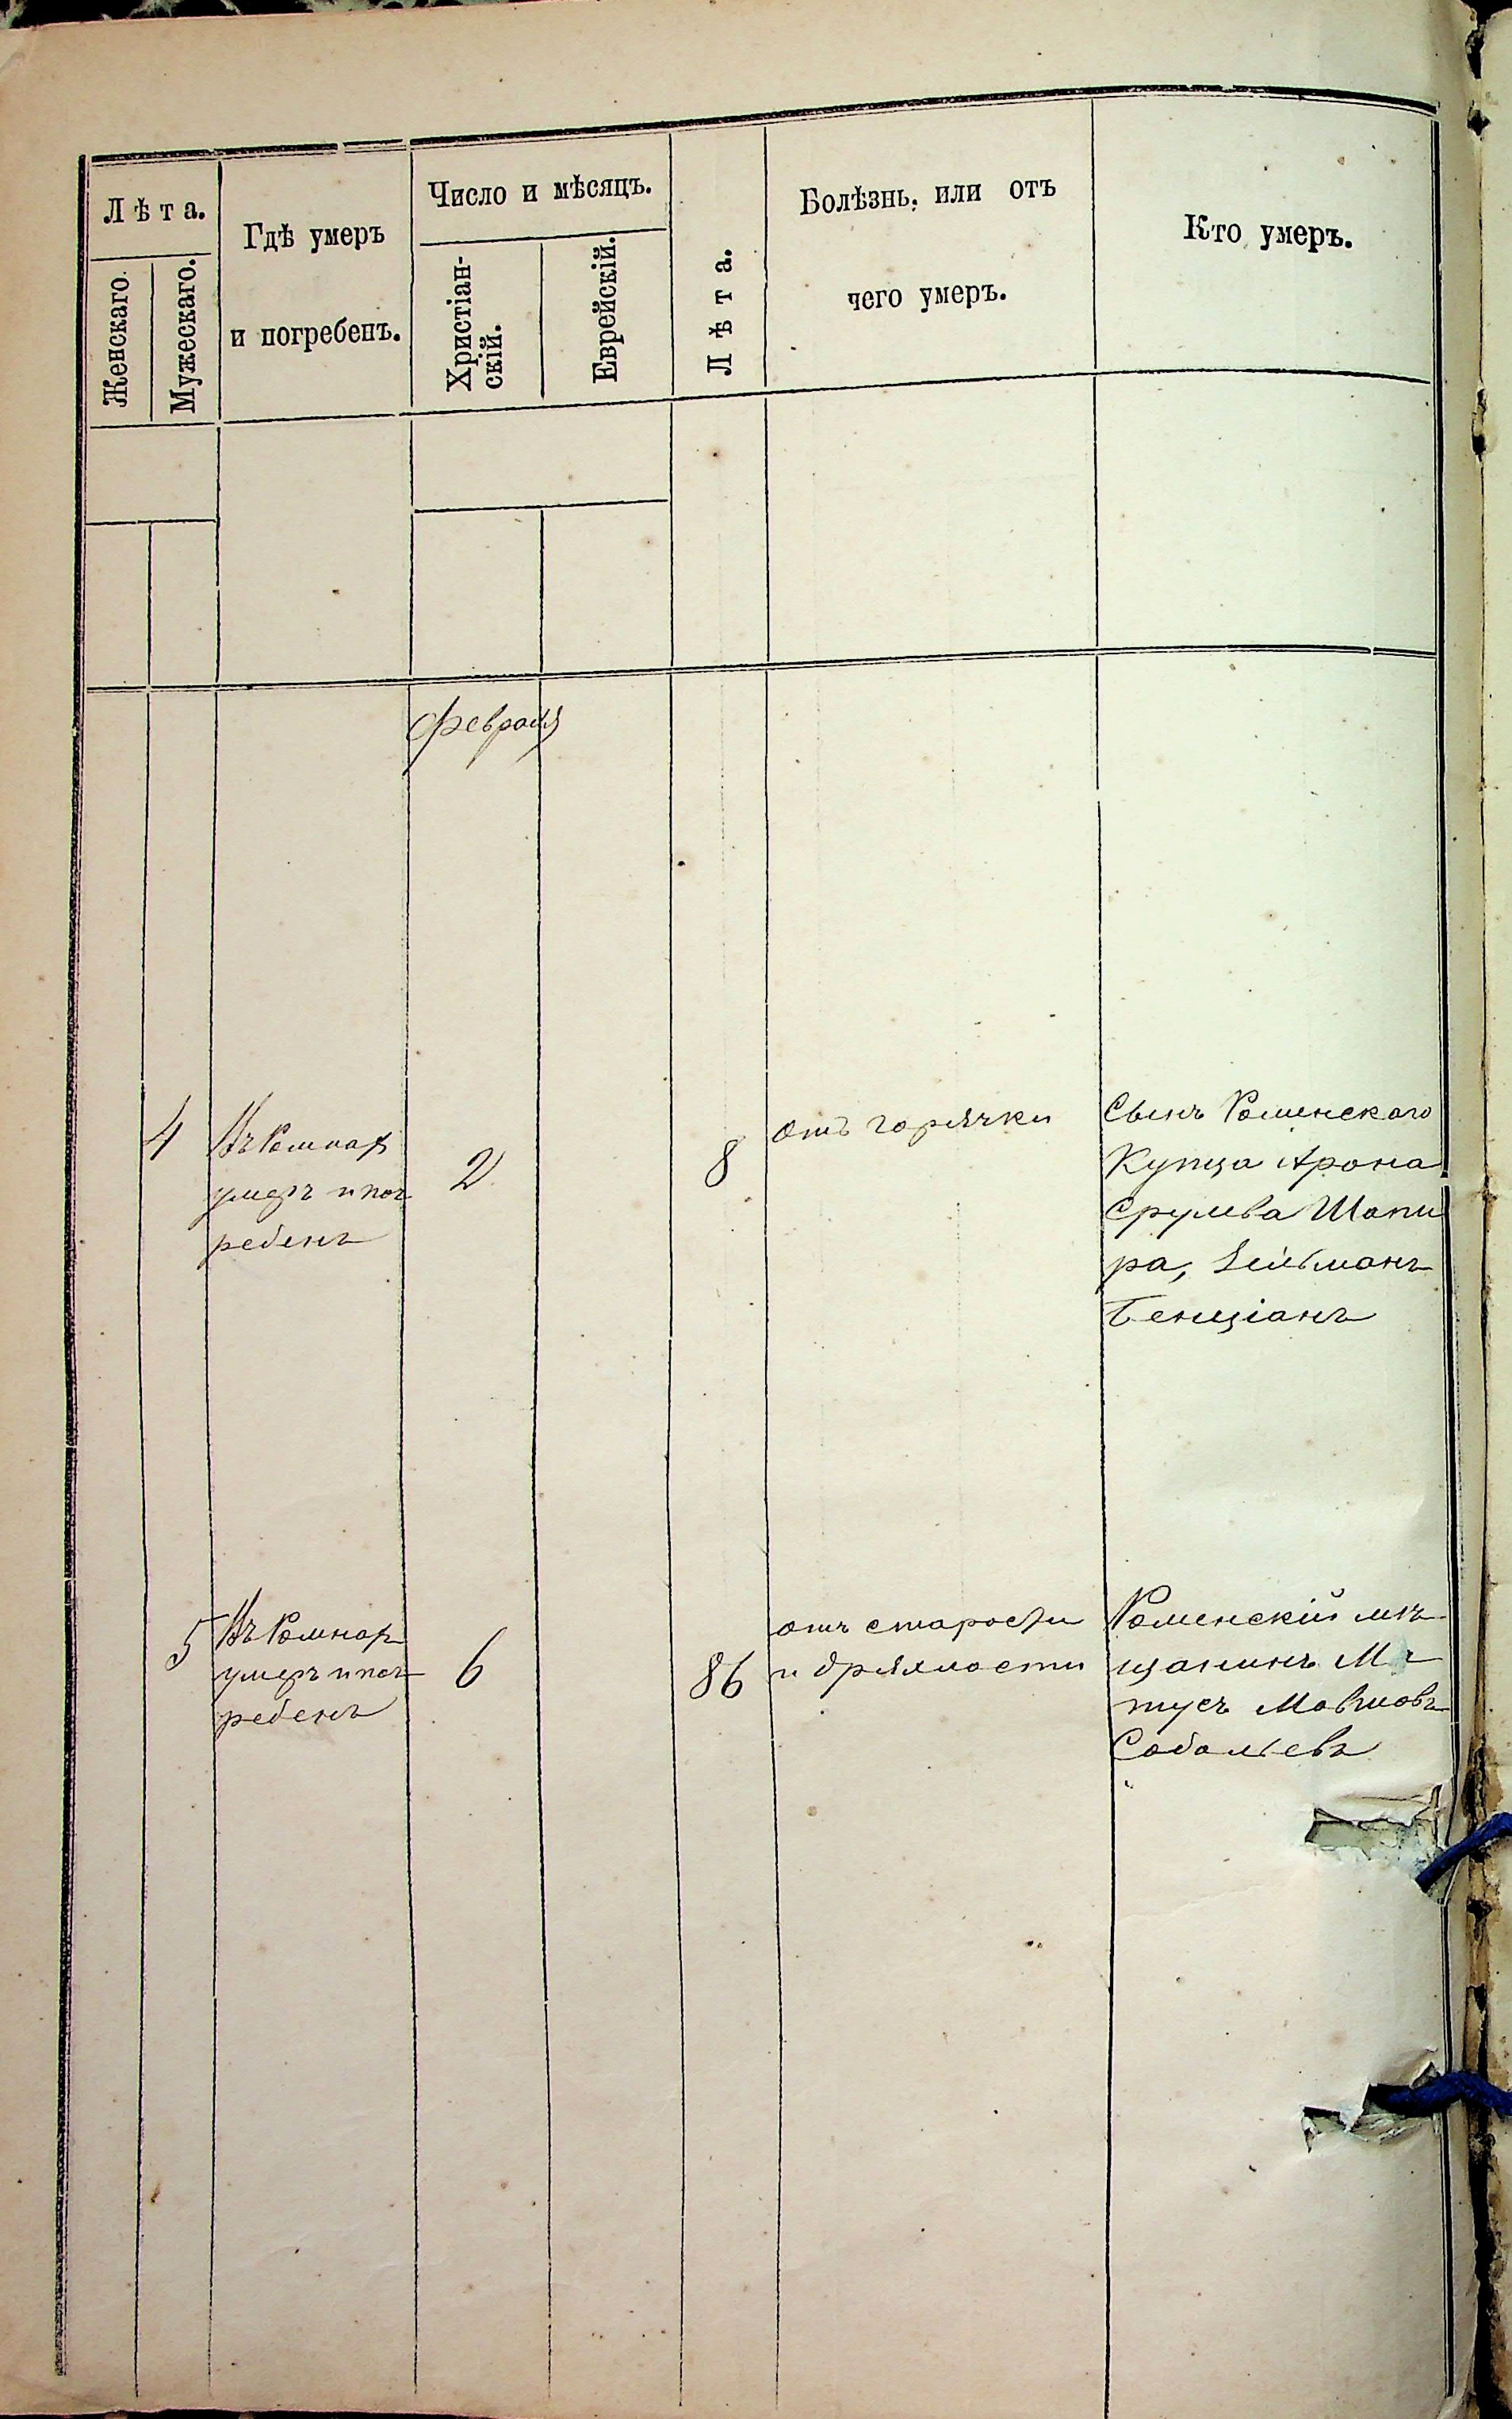 Лѣта.
Женскаго.
Мужескаго.
Гдѣ умеръ
и погребенъ.
Число и мѣсяцъ.
Христіан-
скій.
Еврейскій.
Лѣта.
Болѣзнь, или отъ
чего умеръ.
Кто умеръ.
Февраля
4
Въ Ромнах
умеръ и пог
ребенъ
2
8
отъ горячки
Сынъ Роменскаго
Купца Арона
Срулева Шапи
ра, Зельманъ
Бенціанъ
5
Въ Ромнах
умеръ и пог
ребенъ
6
86
отъ старости
и дряхлости
Роменскій мѣ
щанинъ
тусъ Мовшовъ
Соболевъ